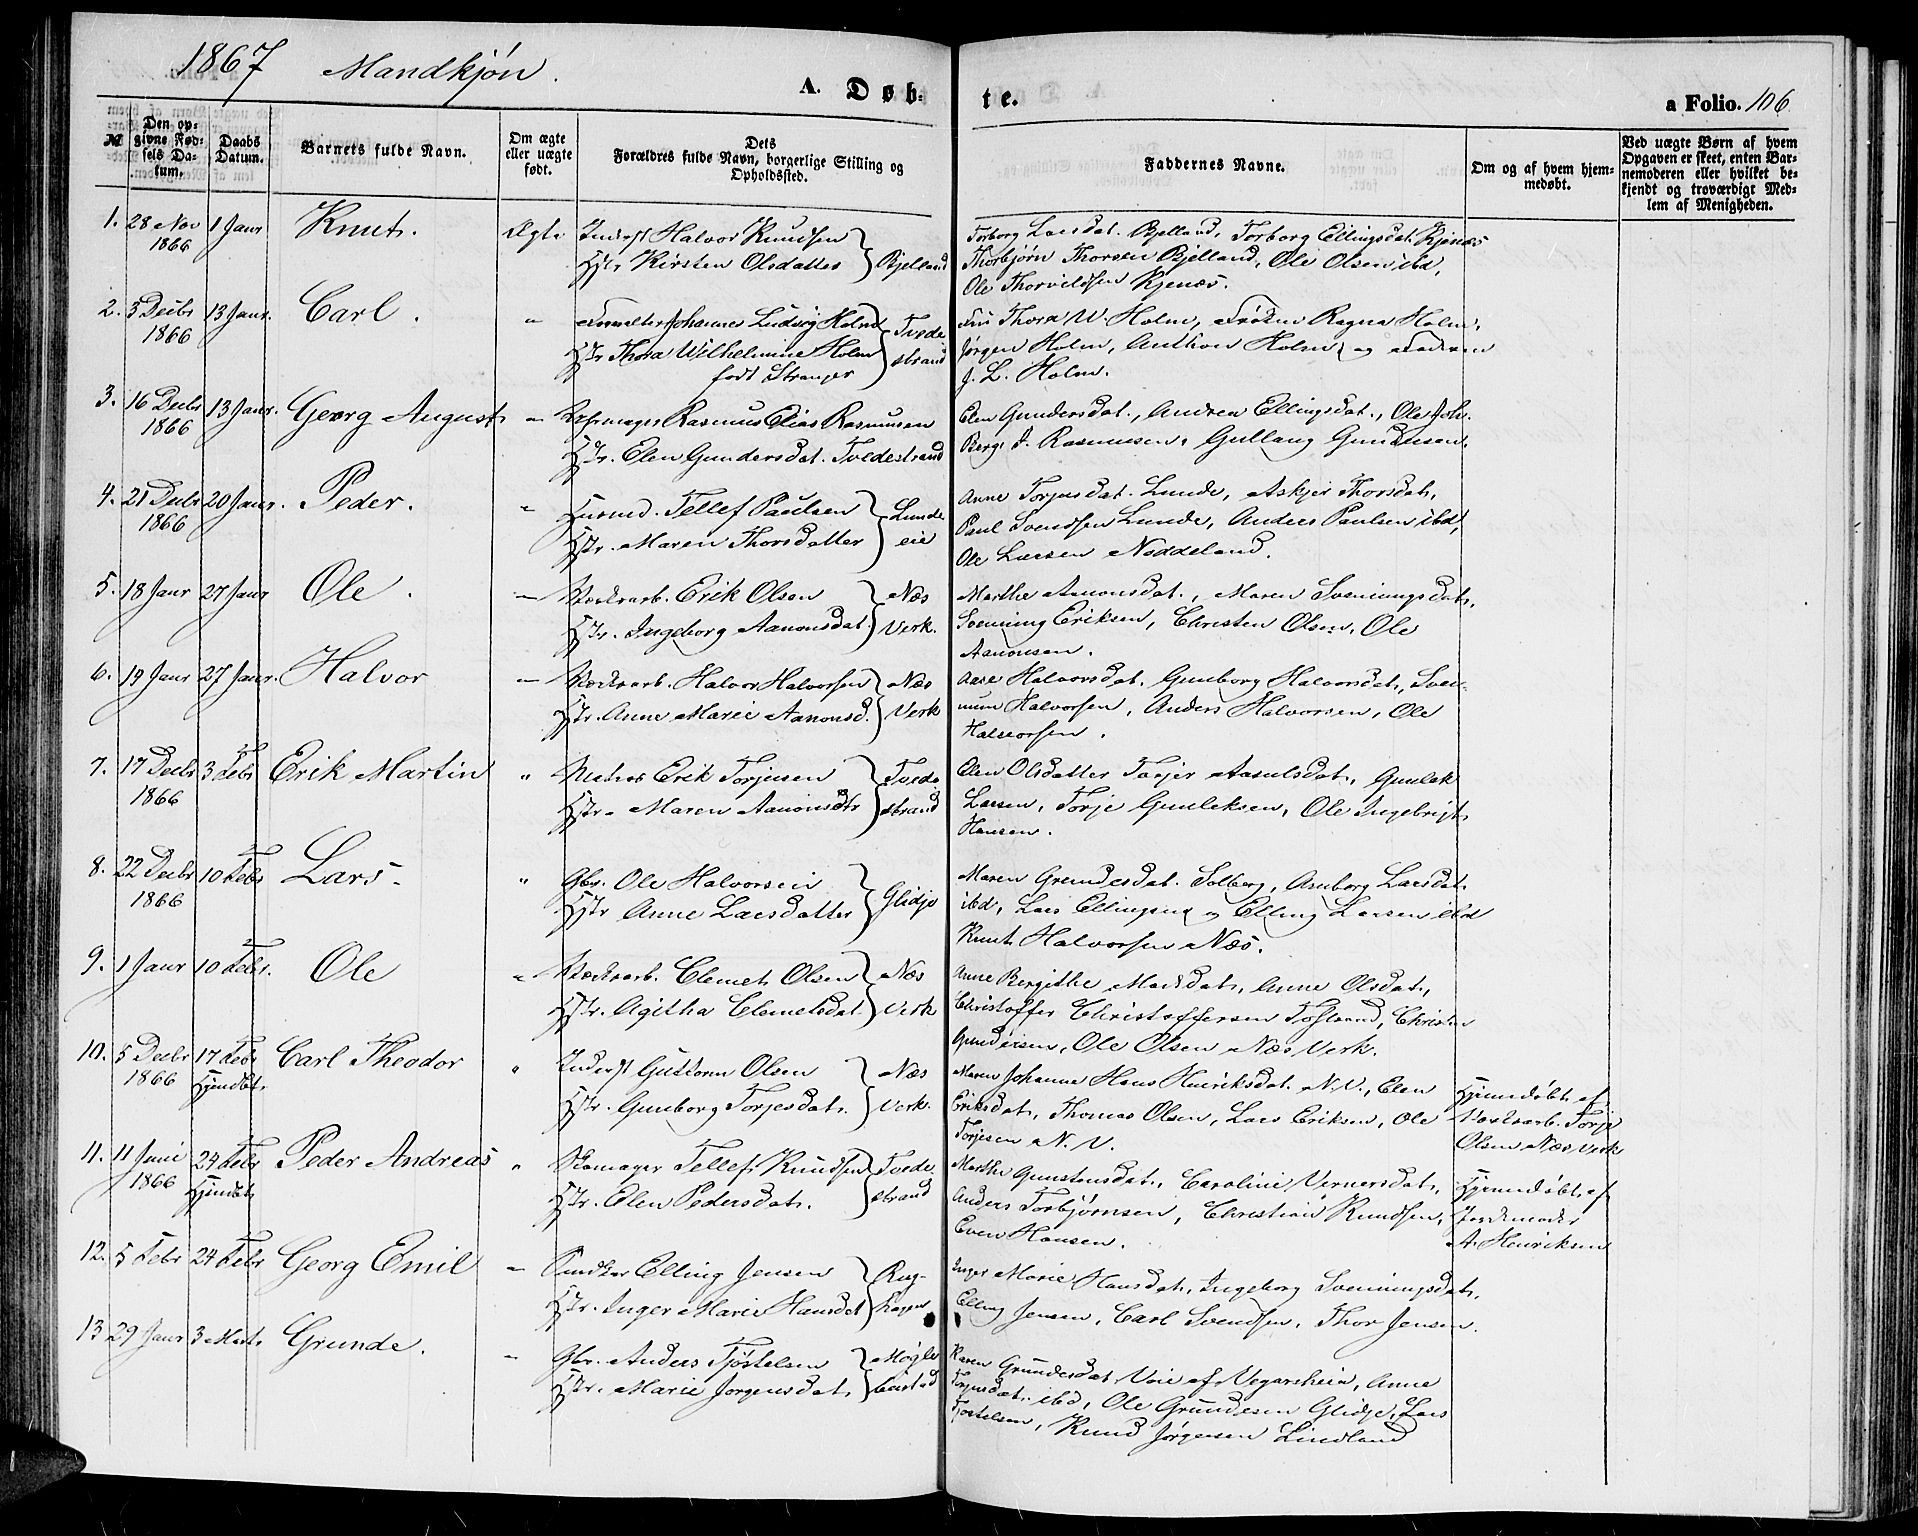 1867 Mandkjøn.
A. Døb- te.
a Folio. 106
№
Den op-
givne Fød-
sels Da-
tum.
Daabs
Datum.
Barnets fulde Navn.
Om ægte
eller uægte
født.
Dets
Forældres fulde Navn, borgerlige Stilling og
Opholdssted.
Faddernes Navne.
Om og af hvem hjem-
medøbt.
Ved uægte Børn af hvem
Opgaven er skeet, enten Bar-
nemoderen eller hvilket be-
kjendt og troværdigt Med-
lem af Menigheden.
1. 28 Nov 1866 1 Janr Knut. Ægte
Inderst Halvor Knudsen
Hstr Kirsten Olsdatter } Bjelland
Torborg Larsdat. Bjelland, Torborg Ellingsdat. Kjenæs
Thorbjørn Thorsen Bjelland, Ole Olsen ibd,
Ole Thorvildsen Kjenæs.
2. 5 Decbr 1866 13 Janr. Carl. "
Johannes Ludvig Holm
Hstr Thora Wilhelmine Holm } Tvede
født Stranger strand
Fru Thora W. Holm, Frøken Ragna Holm,
Jørgen Holm, Anthon Holm og Faderen
J. L. Holm.
3. 16 Decbr 1866 13 Janr. Georg August "
Rasmus Elias Rasmussen
Hstr. Elen Gundersdat. Tvedestrand
Elen Gundersdat., Andrea Ellingsdat., Ole Joh.
Berg, J. Rasmussen, Gullaug Gundersen.
4. 21 Decbr 1866 20 Janr. Peder. "
Husmd. Tellef Paulsen } Lunde
Hstr. Maren Thorsdatter eie
Anne Torjusdat. Lunde, Askjer Thorsdat,
Paul Svendsen Lunde, Anders Paulsen ibd,
Ole Larsen Noddeland.
5. 18 Janr 27 Janr Ole. "
Værksarb. Erik Olsen } Næs
Hstr. Ingeborg Aanonsdat. Verk.
Marthe Aanonsdat., Maren Svenningsdat,
Svenning Eriksen, Christen Olsen, Ole
Aanonsen.
6. 19 Janr 27 Janr. Halvor "
Værksarb. Halvor Halvorsen } Næs
Hstr. Anne Marie Aanonsd. Verk
Aase Halvorsdat. Gunborg Halvorsdat, Sven-
Halvorsen, Anders Halvorsen, Ole
Halvorsen.
7. 17 Decbr 1866 3 Febr Erik Martin "
Matros Erik Torjussen } Tvede
Hstr. Maren Aanonsdtr strand
Elen Olsdatter Aasulsdat, Gunlek
Larsen, Torje Gunleksen, Ole Ingebrigt
Hansen.
8. 22 Decbr 1866 10 Febr Lars. "
Gbr. Ole Halvorsen } Glidje
Hstr Anne Larsdatter
Maren Grundesdat. Solberg, Asborg Larsdat.
ibd, Lars Ellingsen og Elling Larsen ibd
Knut Halvorsen Næs.
9. 1 Janr 10 Febr. Ole "
Værksarb. Clemet Olsen } Næs
Hstr. Agitha Clemetsdat. Verk
Anne Bergithe Madsdat, Anne Olsdat,
Christoffer Christoffersen Fosland, Christen
Gundersen, Ole Olsen Næs Verk.
10. 5 Decbr 1866 17 Febr Hjemdøbt Carl Theodor "
Inderst Guttorm Olsen } Næs
Hstr. Gunborg Torjesdat. Verk.
Maren Johanna Hans Henriksdat. N.V., Elen
Eriksdat, Thomas Olsen, Lars Eriksen, Ole
Torjesen N.V.
Hjemmdøbt af
Værksarb. Torje
Olsen Næs Verk
11. 11 Juni 1866 24 Febr Hjemdøbt Peder Andreas "
Skomager Tellef Knudsen } Tvede
Hstr. Elen Pedersdat. strand
Marthe Gunstensdat., Caroline Vernersdat,
Anders Torbjørnsen, Christian Knudsen,
Even Hansen.
Hjemmdøbt af
Jordemoder
A. Henriksen
12. 5 Febr 24 Febr Georg Emil "
Snedker Elling Jensen } Rug-
Hstr. Inger Marie Hansdat
Inger Marie Hansdat, Ingeborg Svenningsdat,
Elling Jensen, Carl Svendsen, Thor Jensen.
13 29 Janr 3 Marts Grunde. "
Gbr. Anders Tjøstelsen } Møgle
Hstr. Marie Jørgensdat, bustad
Karen Grundesdat. Voie af Vegarsheia, Anne
Torjusdat. ibd, Ole Grundesen Glidje, Lars
Tjostelsen, Knud Jørgensen Lindland